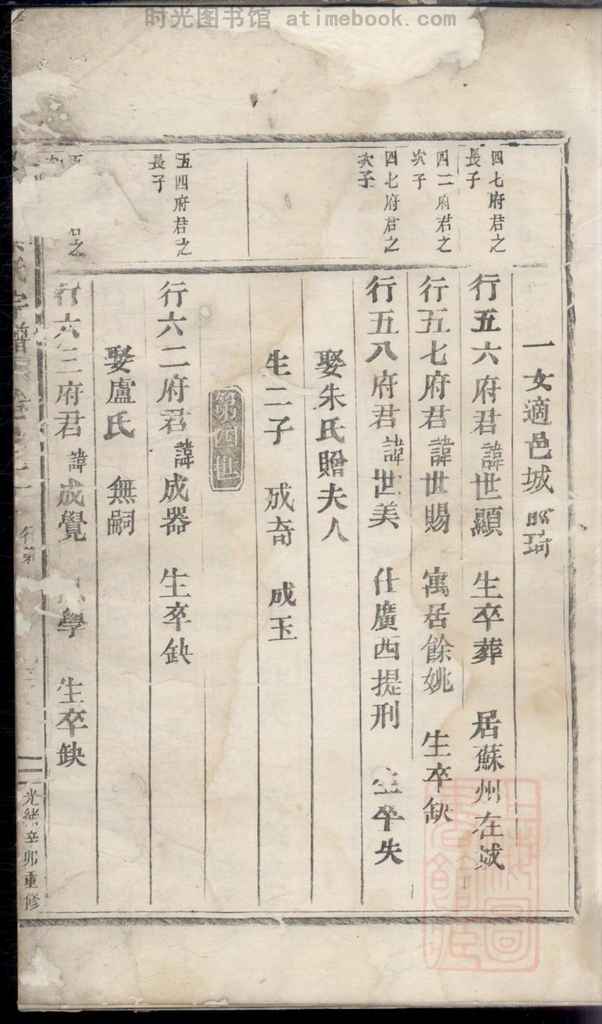 时光图书馆 atimebook.com
一女適邑城
四七府君之
長子
行五六府君諱世顯 生卒葬 居蘇州在城
四二府君之
次子
行五七府君諱世賜 寓居餘姚 生卒缺
四七府君之
次子
行五八府君諱世美 仕廣西提刑 生卒失
娶朱氏贈夫人
生二子 成奇 成玉
第四世
五四府君之
長子
行六二府君諱成器 生卒缺
娶盧氏 無嗣
之
行六三府君諱成覺 學 生卒缺
氏宗譜
光緒辛卯重修